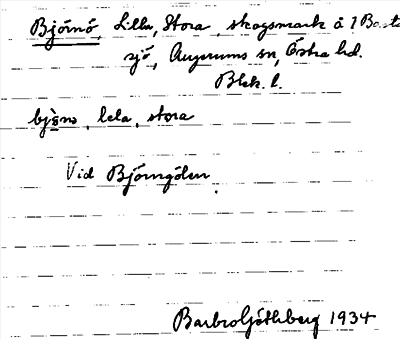 Björnö, Lilla, Stora, skogsmark å 1
sjö, Augerums sn, Östra hd.
Blek. l.
björnö, lela, stora
Vid Björngölen.
Barbro Götlberg 1934